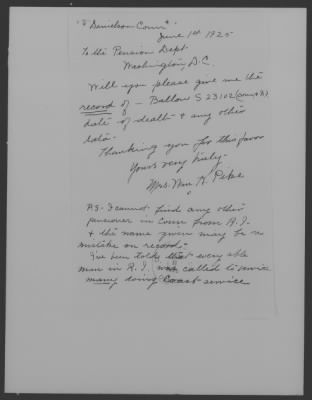 "Danielson Conn"
June 1st 1925
To the Pension Dept.
Washington, D.C.
Will you please give me the
record of - Ballou S 23102
date of death & any other
data.
Thanking you for this favor
Yours very truly.
Mrs. Wm. H. Pike
P.S. I cannot find any other
pensioner in Conn from R.I.
& the name given may be a
mistake on record.
I've been told that every able
man in R.I. was called to service
many doing Coast service